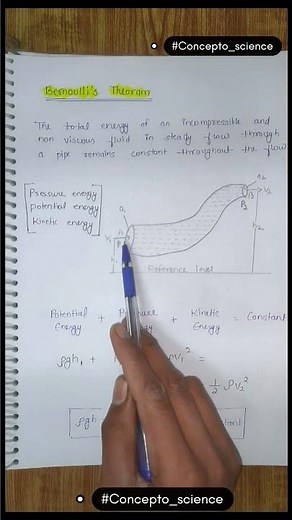 #Concepto_science
Bernoulli's Theoram
The total energy of an incompressible and
non viscous fluid in steady flow through
a pipe remains constant throughout the flow
Pressure energy
potential energy
kinetic energy
a₁
a₂
A
B
V₁
V₂
P₂
h₂
Reference level
Potential Energy + Energy + Kinetic Energy = Constant
ρgh₁ + ρv₁² =
½ ρv₂²
ρgh
#Concepto_science